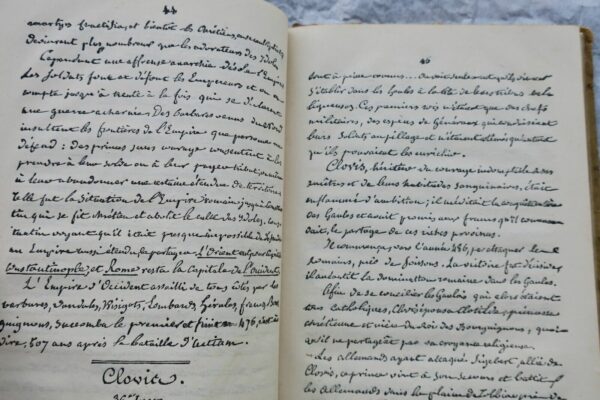 44
martyrs fructifia, et bientôt les Chrétiens
devinrent plus nombreux que les adorateurs des Idoles.
Cependant une affreuse anarchie désola l'Empire
Les Soldats font et défont les Empereurs et on en
compte jusqu'à trente à la fois qui se déclarent
une guerre acharnée. Des barbares venus du Nord
insultent les frontières de l'Empire que personne ne
défend: Des princes sans courage consentent à les
prendre à leur solde ou à leur payer tribut,
à leur abandonner une certaine étendue de territoire
Telle fut la Situation de l'Empire Romain jusqu'à
tin qui se fit chrétien et abolit le culte des Idoles.
tantin voyant qu'il était presque impossible de
un Empire aussi étendu, le partagea. L'Orient eut pour
Constantinople, et Rome resta la Capitale de l'Occident.
L'Empire d'Occident assailli de tous côtés par les
barbares, Vandales, Visigots, Lombards, Hérules, francs,
guignons, succomba le premier et finit en 476, c'est à
dire, 507 ans après la bataille d'actium.
Clovis.
46
tout à peine connus
S'établir dans les Gaules à la tête de
liqueuses. Ces premiers rois n'étaient que des chefs
militaires, des espèces de Généraux qui conduisaient
leurs soldats au pillage et n'étaient estimés qu'autant
qu'ils pouvaient les enrichir.
Clovis, héritier du courage indomptable de ses
ancêtres et de leurs habitudes sanguinaires, était
enflammé d'ambition; il méditait la conquête
des Gaules et avait promis aux francs qu'il
dait, le partage de ces riches provinces.
Il commença, vers l'année 486, par attaquer les
Romains, près de Soissons. La victoire fut décisive
il anéantit la domination romaine dans les Gaules.
Afin de se concilier les Gaulois qui alors étaient
tous catholiques, Clovis épousa Clotilde, princesse
chrétienne et nièce du Roi des Bourguignons, quoi
qu'il ne partageât pas sa croyance religieuse.
Les allemands ayant attaqué Sigebert, allié de
Clovis, ce prince vint à son secours et battit
les Allemands dans la plaine de Tolbiac près de